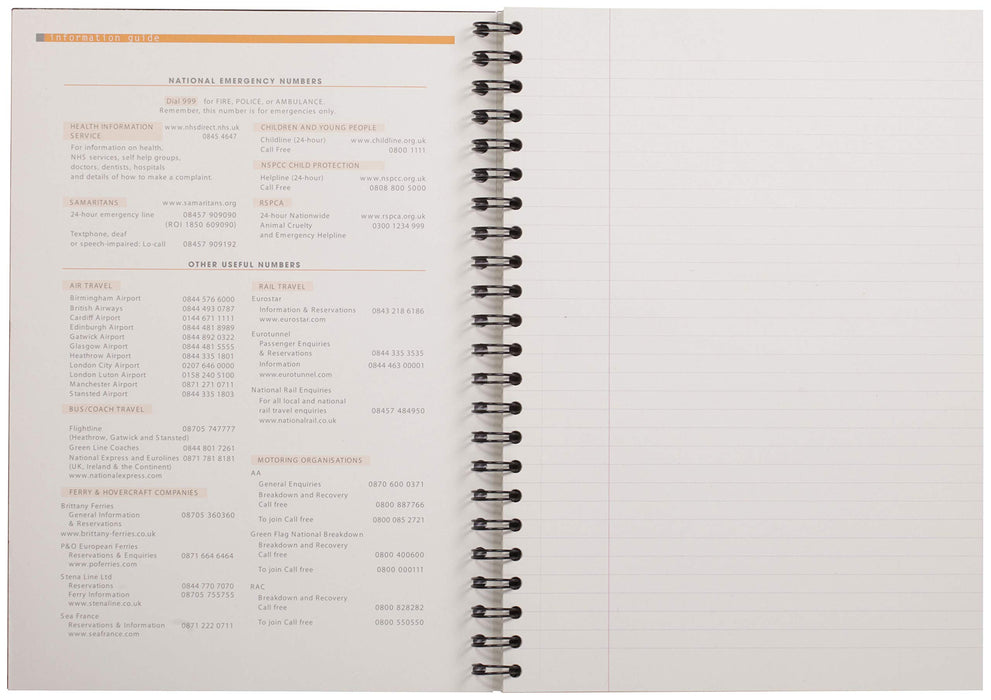 information guide
NATIONAL EMERGENCY NUMBERS
Dial 999 for FIRE, POLICE, or AMBULANCE.
Remember, this number is for emergencies only.
HEALTH INFORMATION www.nhsdirect.nhs.uk
SERVICE 0845 4647
For information on health,
NHS services, self help groups,
doctors, dentists, hospitals
and details of how to make a complaint.
SAMARITANS www.samaritans.org
24-hour emergency line 08457 909090
(ROI 1850 609090)
Textphone, deaf
or speech-impaired: Lo-call 08457 909192
CHILDREN AND YOUNG PEOPLE
Childline (24-hour) www.childline.org.uk
Call Free 0800 1111
NSPCC CHILD PROTECTION
Helpline (24-hour) www.nspcc.org.uk
Call Free 0808 800 5000
RSPCA
24-hour Nationwide www.rspca.org.uk
Animal Cruelty 0300 1234 999
and Emergency Helpline
OTHER USEFUL NUMBERS
AIR TRAVEL
Birmingham Airport 0844 576 6000
British Airways 0844 493 0787
Cardiff Airport 0144 671 1111
Edinburgh Airport 0844 481 8989
Gatwick Airport 0844 892 0322
Glasgow Airport 0844 481 5555
Heathrow Airport 0844 335 1801
London City Airport 0207 646 0000
London Luton Airport 0158 240 5100
Manchester Airport 0871 271 0711
Stansted Airport 0844 335 1803
BUS/COACH TRAVEL
Flightline 08705 747777
(Heathrow, Gatwick and Stansted)
Green Line Coaches 0844 801 7261
National Express and Eurolines 0871 781 8181
(UK, Ireland & the Continent)
www.nationalexpress.com
FERRY & HOVERCRAFT COMPANIES
Brittany Ferries
General Information 08705 360360
& Reservations
www.brittany-ferries.co.uk
P&O European Ferries
Reservations & Enquiries 0871 664 6464
www.poferries.com
Stena Line Ltd
Reservations 0844 770 7070
Ferry Information 08705 755755
www.stenaline.co.uk
Sea France
Reservations & Information 0871 222 0711
www.seafrance.com
RAIL TRAVEL
Eurostar
Information & Reservations 0843 218 6186
www.eurostar.com
Eurotunnel
Passenger Enquiries
& Reservations 0844 335 3535
Information 0844 463 00001
www.eurotunnel.com
National Rail Enquiries
For all local and national
rail travel enquiries 08457 484950
www.nationalrail.co.uk
MOTORING ORGANISATIONS
AA
General Enquiries 0870 600 0371
Breakdown and Recovery
Call free 0800 887766
To join Call free 0800 085 2721
Green Flag National Breakdown
Breakdown and Recovery
Call free 0800 400600
To join Call free 0800 000111
RAC
Breakdown and Recovery
Call free 0800 828282
To join Call free 0800 550550